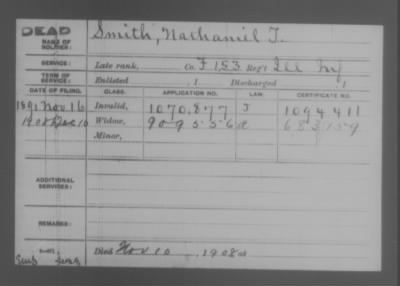 DEAD
NAME OF SOLDIER: Smith, Nathaniel T.
SERVICE: Late rank, Co. F 153 Reg't Ill Inf
TERM OF SERVICE: Enlisted , 1 Discharged , 1
DATE OF FILING. CLASS. APPLICATION NO. LAW. CERTIFICATE NO.
1891 Nov 16 Invalid, 1070,877 J 1094411
1908 Dec 10 Widow, 909556 683159
Minor,
ADDITIONAL SERVICES:
REMARKS:
Died Nov 10, 1908 at